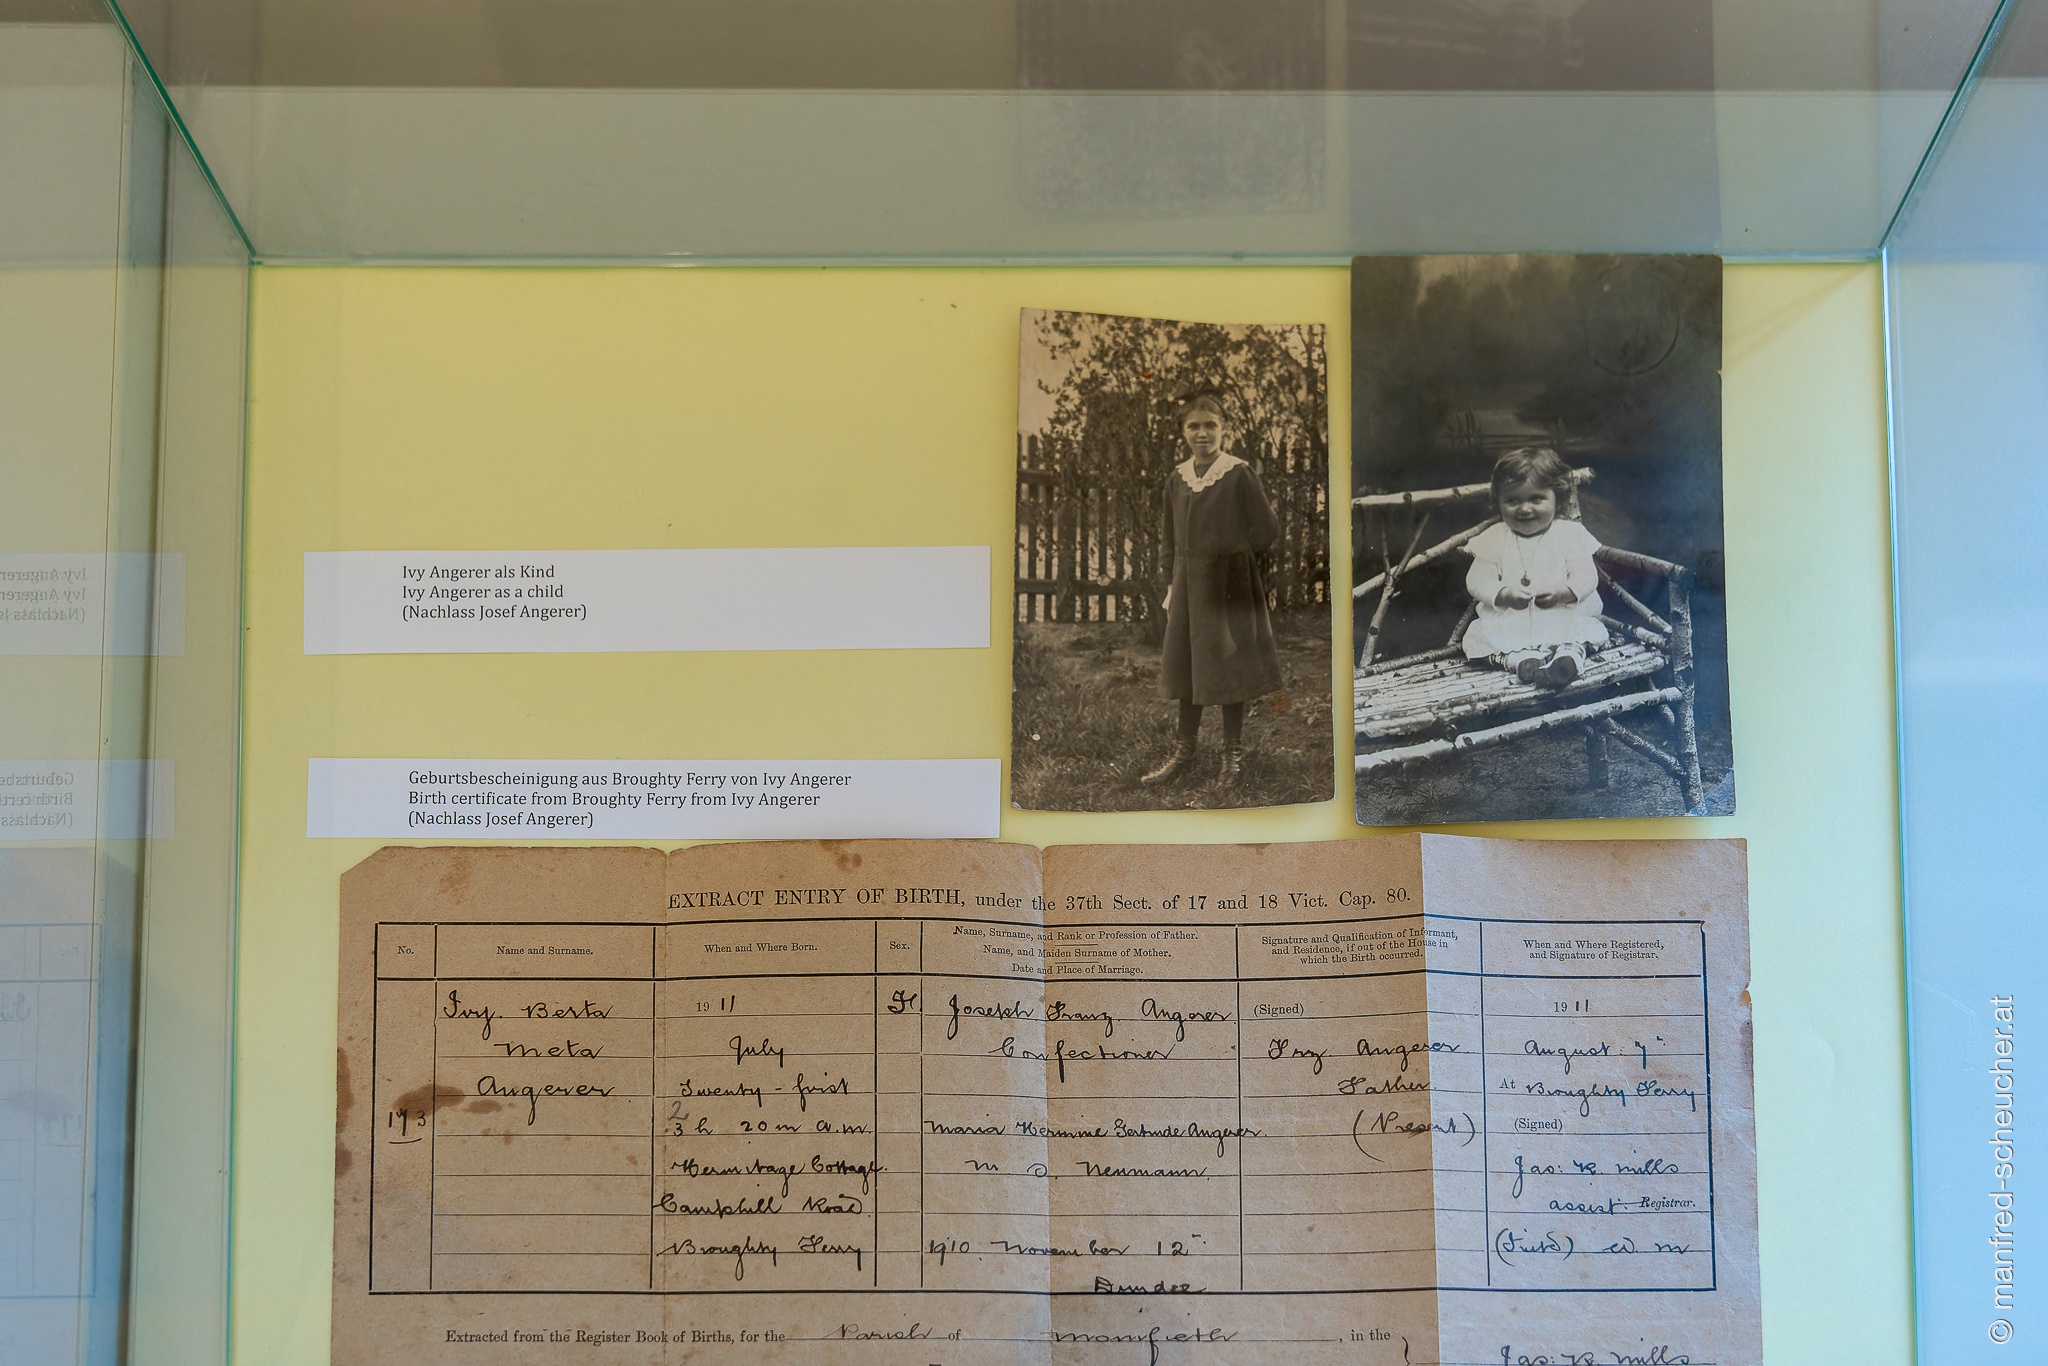 Ivy Angerer als Kind
Ivy Angerer as a child
(Nachlass Josef Angerer)
Geburtsbescheinigung aus Broughty Ferry von Ivy Angerer
Birth certificate from Broughty Ferry from Ivy Angerer
(Nachlass Josef Angerer)
EXTRACT ENTRY OF BIRTH, under the 37th Sect. of 17 and 18 Vict. Cap. 80.
No.
Name and Surname.
When and Where Born.
Sex.
Name, Surname, and Rank or Profession of Father.
Name, and Maiden Surname of Mother.
Date and Place of Marriage.
Signature and Qualification of Informant,
and Residence, if out of the House in
which the Birth occurred.
When and Where Registered,
and Signature of Registrar.
173
Ivy Berta
Meta
Angerer
1911
July
Twenty-first
3h 20m a.m.
Hermitage Cottage
Camphill Road
Broughty Ferry
F.
Joseph Franz Angerer
Confectioner
Maria Hermine Gertrude Angerer.
m. s. Neumann
1910. November 12
Dundee
(Signed)
Angerer
Father
(Present)
1911
August 7
At Broughty Ferry
(Signed)
Jas: K. Mills
assist. Registrar.
W. M
Extracted from the Register Book of Births, for the Parish of Monifieth, in the
Jas: K. Mills
© manfred-scheucher.at